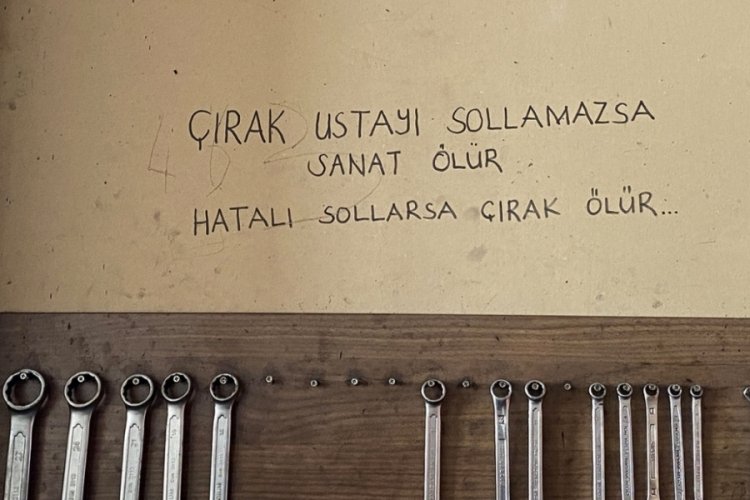 ÇIRAK USTAYI SOLLAMAZSA
SANAT ÖLÜR
HATALI SOLLARSA ÇIRAK ÖLÜR...